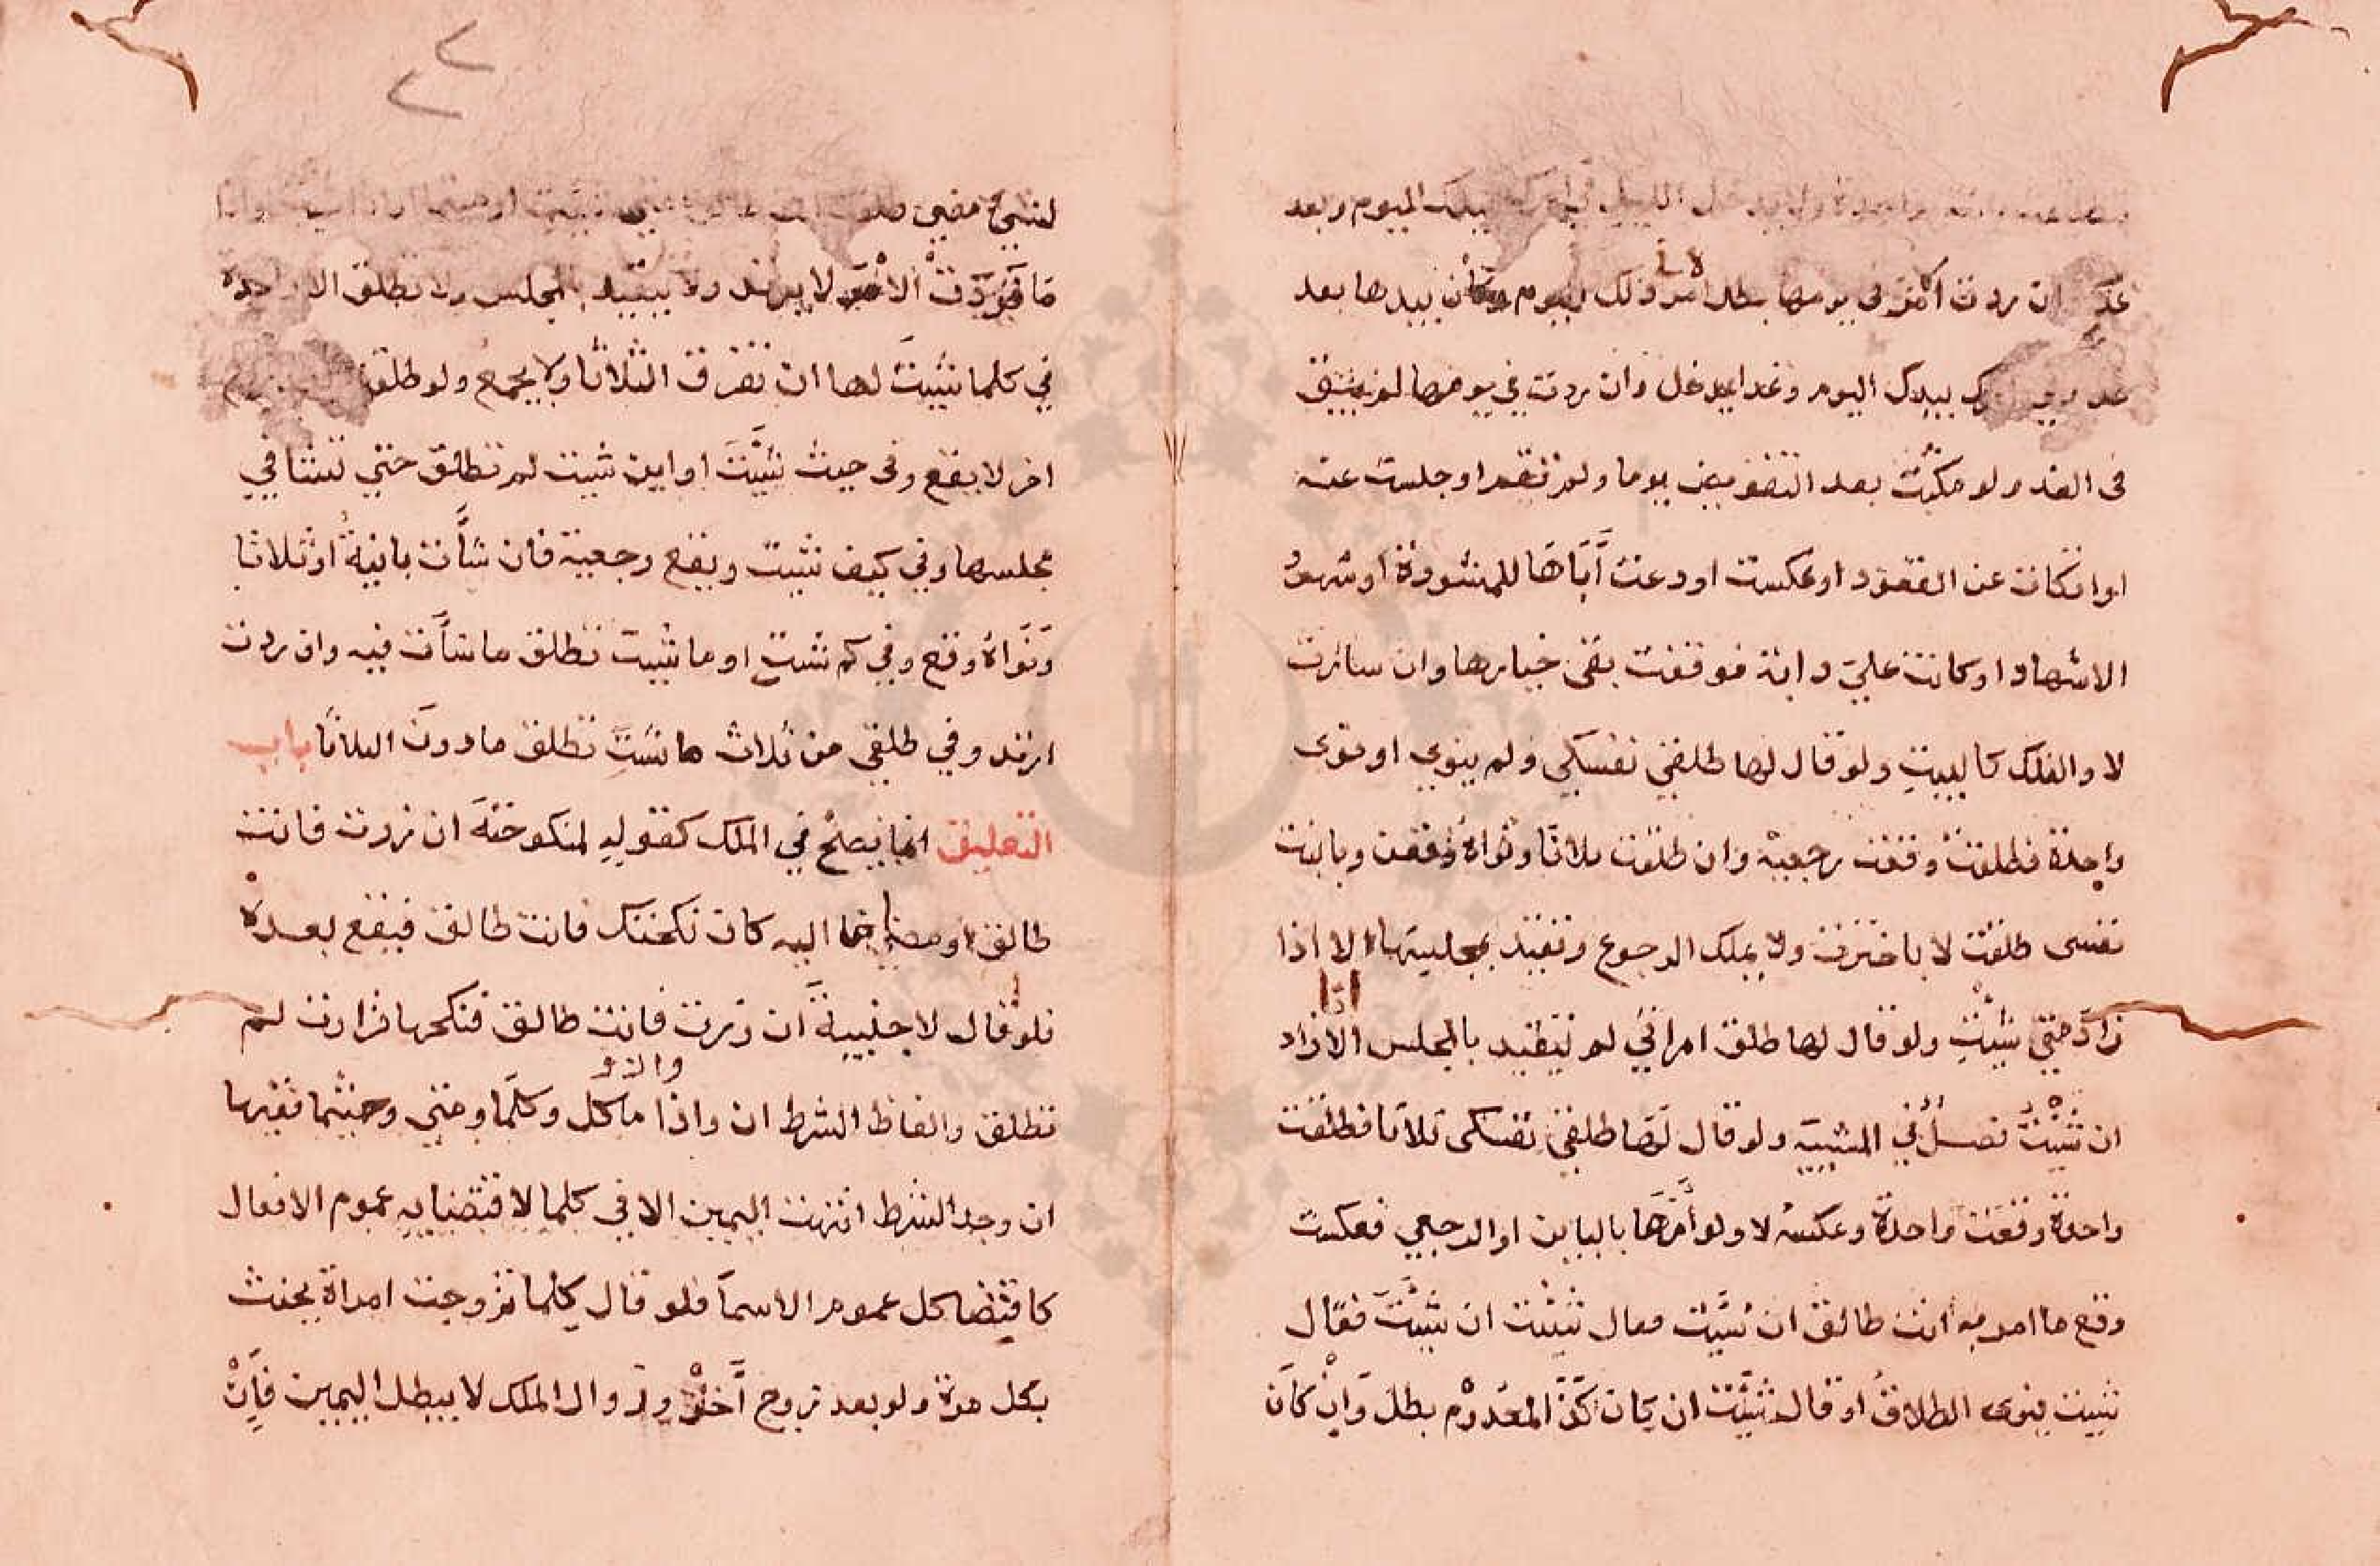 واحدة ولا يدخل الليل في امرك بيدك اليوم وبعد
غد ان ردت الامر في يومها بطل امر ذلك اليوم وكان بيدها بعد
غد وفي امرك بيدك اليوم وغدا يدخل وان ردت في يومها لم يبق
في الغد ولو مكثت بعد التفويض يوما ولم تقم او جلست عنه
او اتكات عن القعود او عكست او دعت اباها للمشورة او شهود
الاشهاد او كانت علي دابة فوقفت بقي خيارها وان سارت
لا والفلك كالبيت ولو قال لها طلقي نفسكي ولم ينوي او نوى
واحدة فطلقت وقعت رجعية وان طلقت ثلاثا ونواه وقعن وبابنت
نفسي طلقت لا باخترت ولا يملك الرجوع وتقيد بمجلسها الا اذا
زاد متي شئت ولو قال لها طلق امراتي لم يتقيد بالمجلس الا اذا زاد
ان شئت تصل في المشية ولو قال لها طلقي نفسكي ثلاثا فطلقت
واحدة وقعت واحدة وعكسه لا ولو امرها بالباين او الرجعي فعكست
وقع ما امر به انت طالق ان شيت فقال شئت ان شئت فقال
شيت ينوى الطلاق او قال شئت ان كان كذا لمعدوم بطل وان كان
لشي مضي طلقت انت طالق متي شيت او متي ما او اذا شيت او اذا
ما فردت الامر لا يرتد ولا يتقيد بالمجلس ولا تطلق الا واحدة
في كلما شيت لها ان تفرق الثلاثا ولا يجمع ولو طلقت
اخر لا يقع وفي حيث شئت او اين شيت لم تطلق حتي تشا في
مجلسها وفي كيف شيت ويقع رجعية فان شأت باينة او ثلاثا
ونواه وقع وفي كم شيت او ما شيت تطلق ما شأت فيه وان ردت
ارتد وفي طلقي من ثلاث ما شئت تطلق ما دون الثلاثا باب
التعليق انما يصح في الملك كقوله لمنكوحته ان زرت فانت
طالق او مضافا اليه كان نكحتك فانت طالق فيقع بعده
فلو قال لاجنبية ان زرت فانت طالق فنكحها فزارت لم
تطلق والفاظ الشرط ان واذا ماكل وكلما ومتي وحيثما ففيها
والاو
ان وجد الشرط انتهت اليمين الا في كلما لاقتضايه عموم الافعال
كاقتضا كل عموم الاسما فلو قال كلما تزوجت امراة يحنث
بكل مرة ولو بعد تزوج اخر وزوال الملك لا يبطل اليمين فان